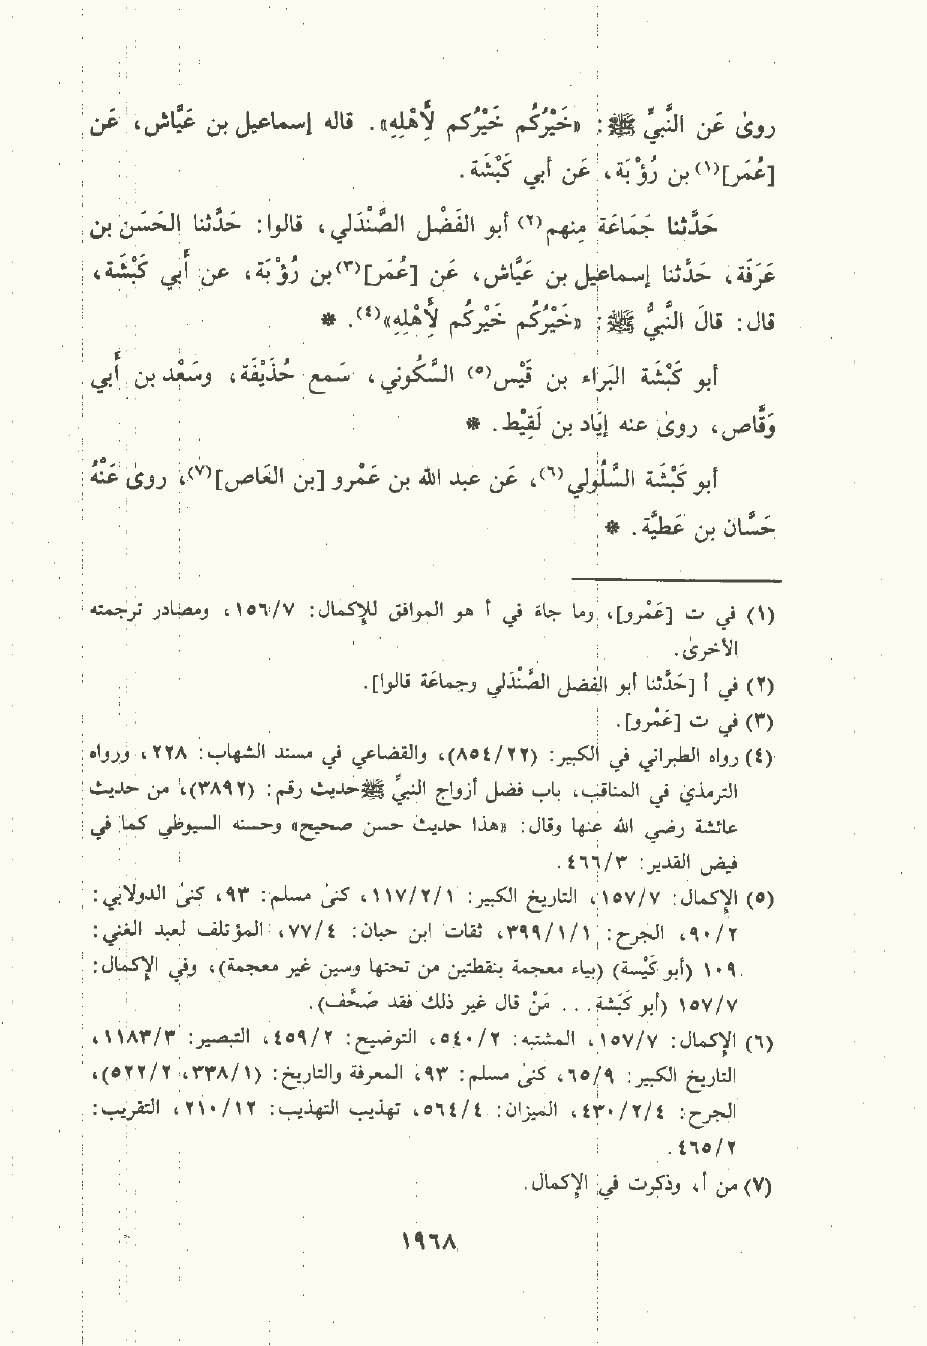 روىٰ عَن النَّبيِّ ﷺ: «خَيْرُكُم خَيْرُكم لأَهْلِهِ». قاله إسماعيل بن عَيَّاش، عَن
[عُمَر](١) بن رُؤْبَة، عَن أبي كَبْشَة.
حَدَّثنا جَمَاعَة منهم(٢) أبو الفَضْل الصَّنْدَلي، قالوا: حَدَّثنا الحَسَن بن
عَرَفَة، حَدَّثنا إسماعيل بن عَيَّاش، عَن [عُمَر](٣) بن رُؤْبَة، عن أَبي كَبْشَة،
قال: قالَ النَّبيُّ ﷺ: «خَيْرُكُم خَيْركُم لأَهْلِهِ»(٤). *
أبو كَبْشَة البَراء بن قَيْس(٥) السَّكُوني، سَمع حُذَيْفَة، وسَعْد بن أَبي
وَقَّاص، روىٰ عنه إيَاد بن لَقِيْط. *
أبو كَبْشَة السَّلُولي(٦)، عَن عبد الله بن عَمْرو [بن العَاص](٧)، روىٰ عَنْهُ
حَسَّان بن عَطيَّة. *
(١) في ت [عَمْرو]، وما جاءَ في أ هو الموافق للإكمال: ١٥٦/٧، ومصادر ترجمته
الأخرىٰ.
(٢) في أ [حَدَّثنا أبو الفضل الصَّنْدَلي وجماعَة قالوا].
(٣) في ت [عَمْرو].
(٤) رواه الطبراني في الكبير: (٨٥٤/٢٢)، والقضاعي في مسند الشهاب: ٢٢٨، ورواه
الترمذي في المناقب، باب فضل أزواج النبيِّ ﷺ حديث رقم: (٣٨٩٢)، من حديث
عائشة رضي الله عنها وقال: «هذا حديث حسن صحيح» وحسنه السيوطي كما في
فيض القدير: ٤٦٦/٣.
(٥) الإكمال: ١٥٧/٧، التاريخ الكبير: ١١٧/٢/١، كنىٰ مسلم: ٩٣، كنىٰ الدولابي:
٩٠/٢، الجرح: ٣٩٩/١/١، ثقات ابن حبان: ٧٧/٤، المؤتلف لعبد الغني:
١٠٩ (أبو كَيْسة) (بياء معجمة بنقطتين من تحتها وسين غير معجمة)، وفي الإكمال:
١٥٧/٧ (أبو كَبَشة... مَنْ قال غير ذلك فقد صَحَّف).
(٦) الإكمال: ١٥٧/٧، المشتبه: ٥٤٠/٢، التوضيح: ٤٥٩/٢، التبصير: ١١٨٣/٣،
التاريخ الكبير: ٦٥/٩، كنىٰ مسلم: ٩٣، المعرفة والتاريخ: (٣٣٨/١، ٥٢٢/٢)،
الجرح: ٤٣٠/٢/٤، الميزان: ٥٦٤/٤، تهذيب التهذيب: ٢١٠/١٢، التقريب:
٤٦٥/٢.
(٧) من أ، وذكرت في الإكمال.
١٩٦٨